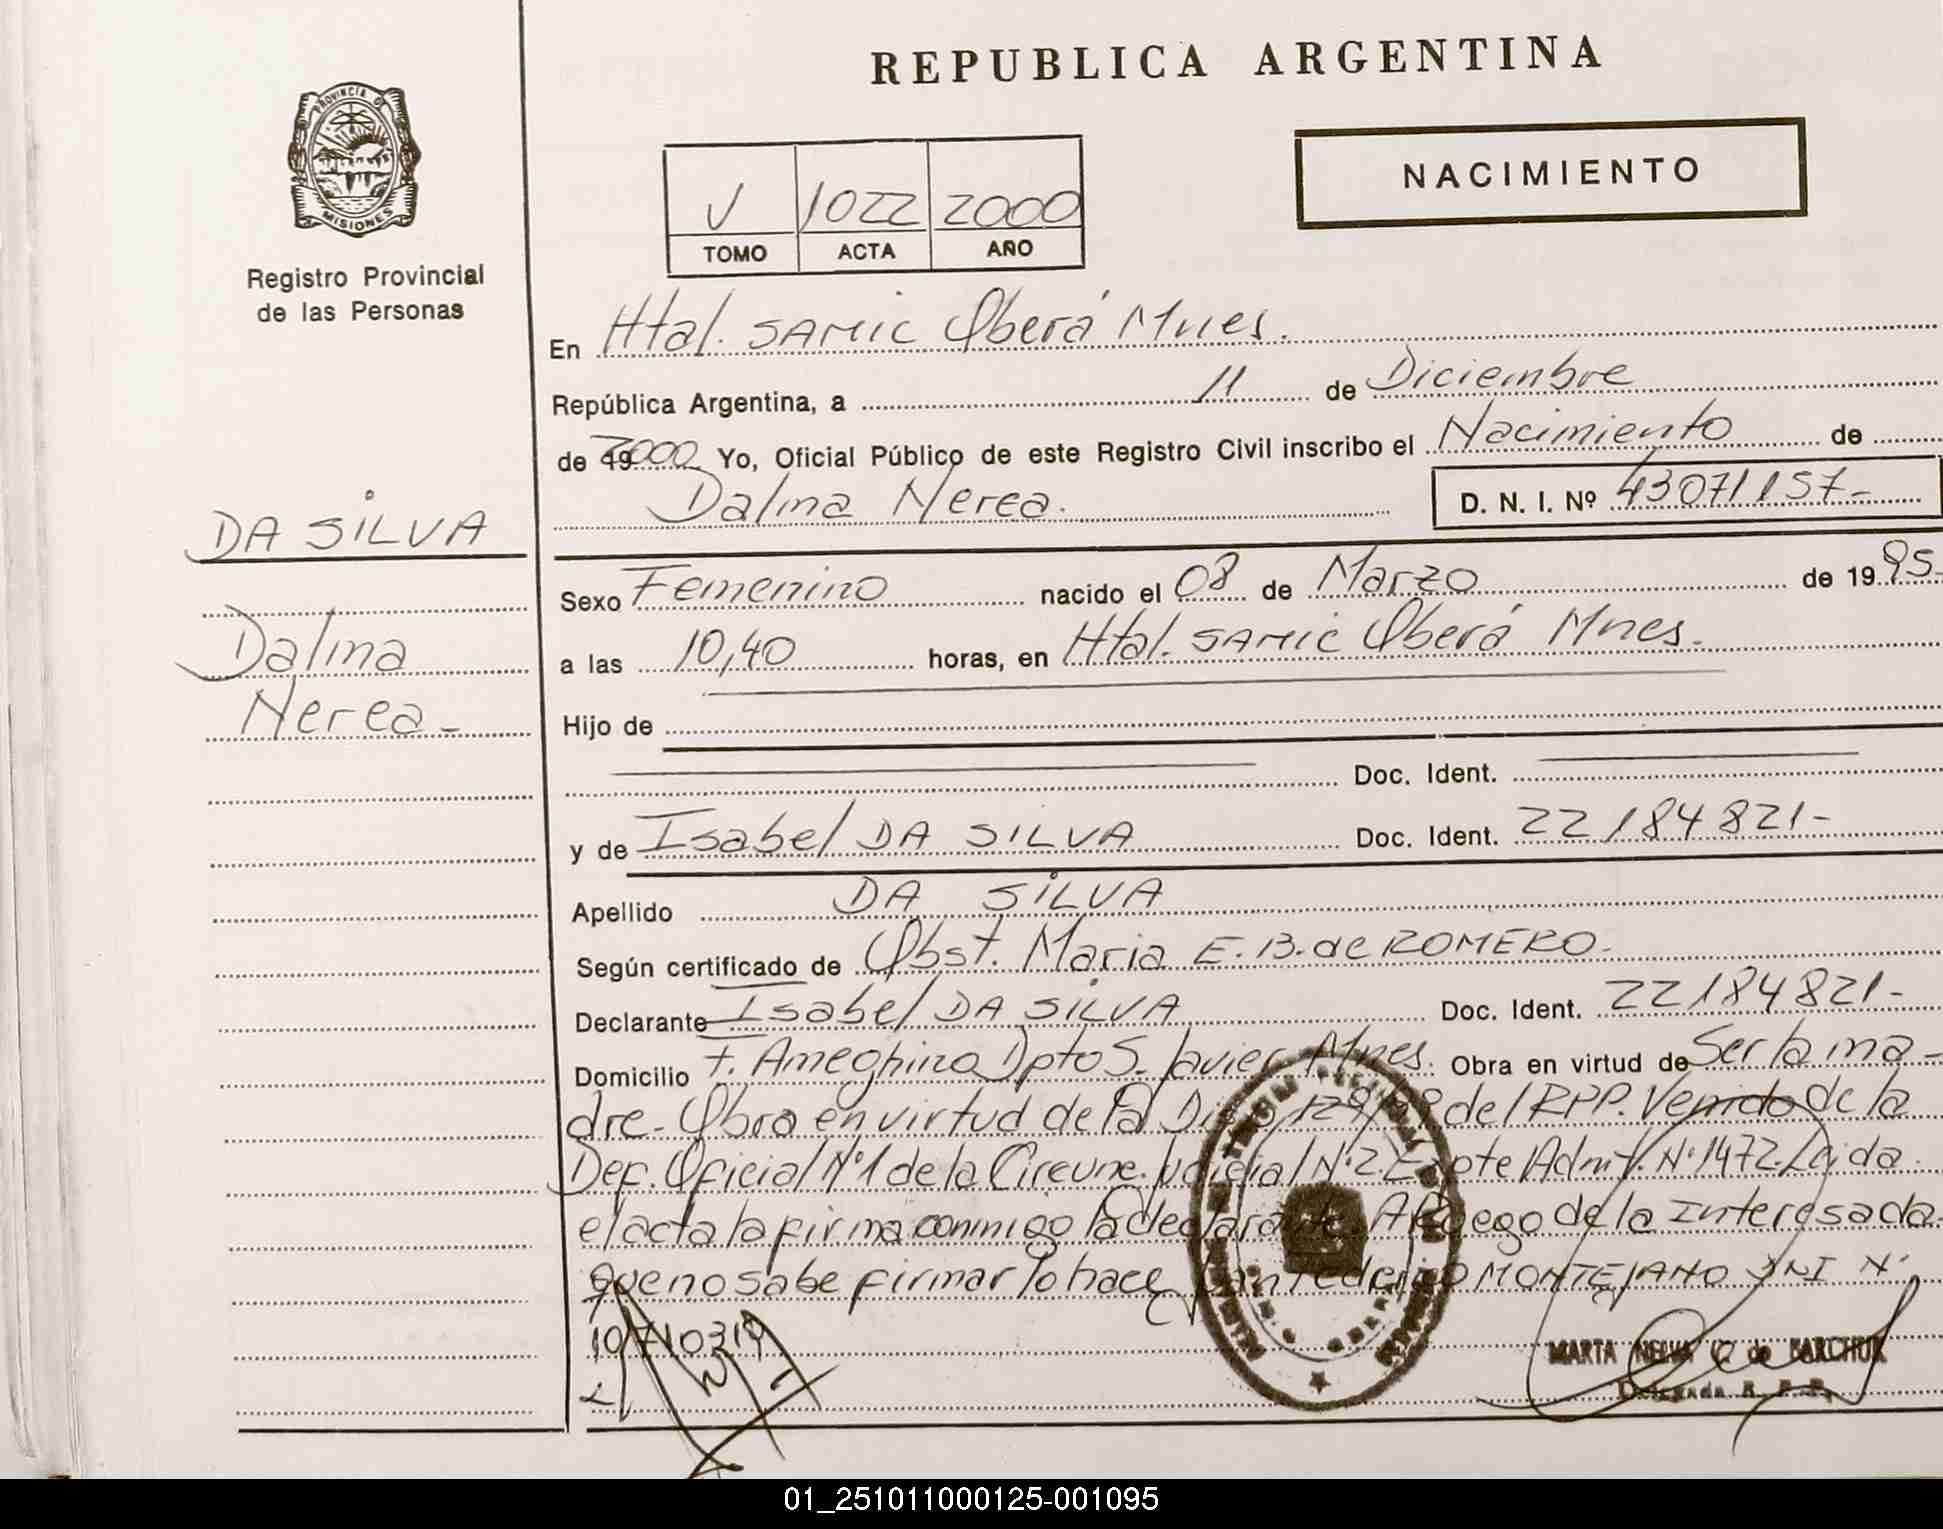 REPUBLICA ARGENTINA
PROVINCIA DE
MISIONES
Registro Provincial
de las Personas
NACIMIENTO
V 1022 2000
TOMO ACTA AÑO
En Htal. SAMIC Oberá Mnes.
República Argentina, a 11 de Diciembre
de 2000 Yo, Oficial Público de este Registro Civil inscribo el Nacimiento de
Dalma Nerea. D. N. I. Nº 43071157-
DA SILVA
Dalma
Nerea-
Sexo Femenino nacido el 08 de Marzo de 1995-
a las 10,40 horas, en Htal. SAMIC Oberá Mnes.
Hijo de
Doc. Ident.
y de Isabel DA SILVA Doc. Ident. 22184821-
Apellido DA SILVA
Según certificado de Obst. Maria E. B. de ROMERO-
Declarante Isabel DA SILVA Doc. Ident. 22184821-
Domicilio F. Ameghino Dpto S. Javier Mnes. Obra en virtud de Ser la ma-
dre- Obra en virtud de la 129/ del RPP. Venido de la
Def. Oficial Nº1 de la Circunc. Judicial Nº2. Expte Adm. Nº1472. Leida
el acta la firma conmigo la declarante A Ruego de la Interesada
que no sabe firmar lo hace Juan Federico MONTEJANO DNI Nº
MARTA de BARCHUK
Delegada R. P. P.
01_251011000125-001095